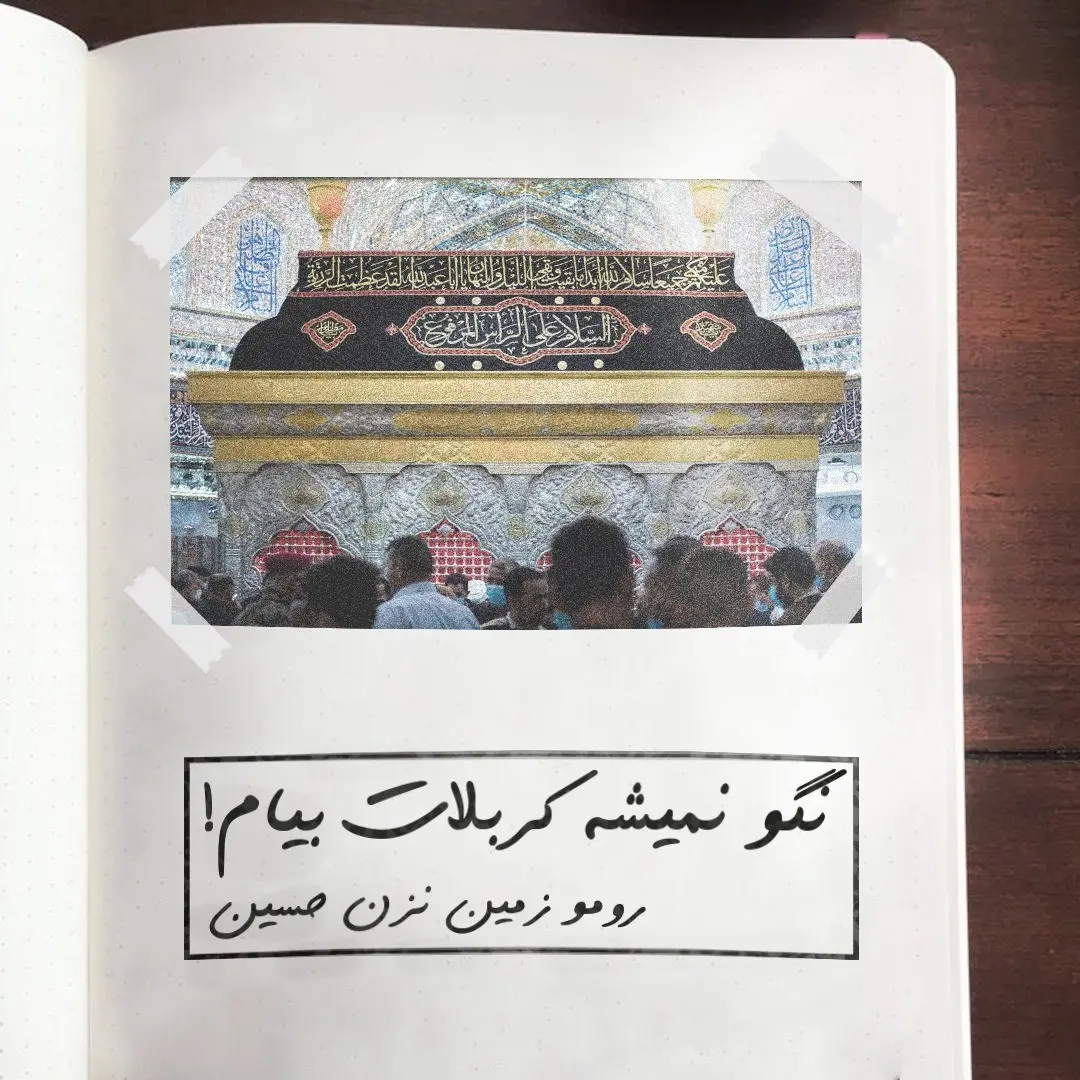 عليكم مني جميعا سلام الله ابدا ما بقيت وبقي الليل والنهار يا ابا عبدالله لقد عظمت الرزية
السلام على الرأس المرفوع
نگو نمیشه کربلات بیام!
رومو زمین نزن حسین